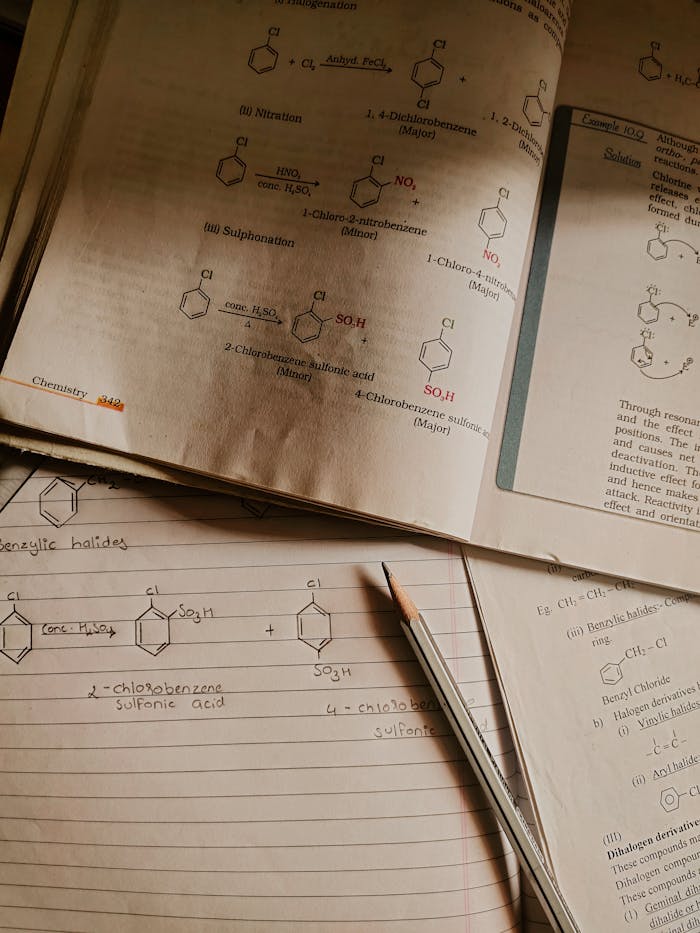 (i) Halogenation
Cl
+ Cl₂
Anhyd. FeCl₃
Cl
Cl
+
Cl
1, 4-Dichlorobenzene
(Major)
1, 2-Dichlorob
(Minor)
(ii) Nitration
Cl
HNO₃
conc. H₂SO₄
Cl
NO₂
+
1-Chloro-2-nitrobenzene
(Minor)
Cl
NO₂
1-Chloro-4-nitrobenzen
(Major)
(iii) Sulphonation
Cl
conc. H₂SO₄
Δ
Cl
SO₃H
+
2-Chlorobenzene sulfonic acid
(Minor)
Cl
SO₃H
4-Chlorobenzene sulfonic ac
(Major)
Chemistry 342
ons as comp
Cl
+ H₃C-C
Example 10.9
Although
ortho-, pa
reactions.
Solution
Chlorine
releases e
effect, chl
formed du
Cl:
+
:Cl:
+ E
:Cl:
+ E
Through resonan
and the effect
positions. The in
and causes net
deactivation. Th
inductive effect fo
and hence makes
attack. Reactivity i
effect and orientat
CH₂
benzylic halides
Cl
Conc. H₂SO₄
Cl
SO₃H
+
Cl
SO₃H
2-chlorobenzene
sulfonic acid
4-chloroben
sulfonic d
(ii)
carb
Eg. CH₂=CH₂-CH₂
(iii) Benzylic halides:- Comp
ring.
CH₂-Cl
Benzyl Chloride
b) Halogen derivatives
(i) Vinylic halides
-C=C-
(ii) Aryl halide
Cl
(III)
Dihalogen derivative
These compounds ma
Dihalogen compoun
These compounds a
(1) Geminal dih
dihalide or
inal dih